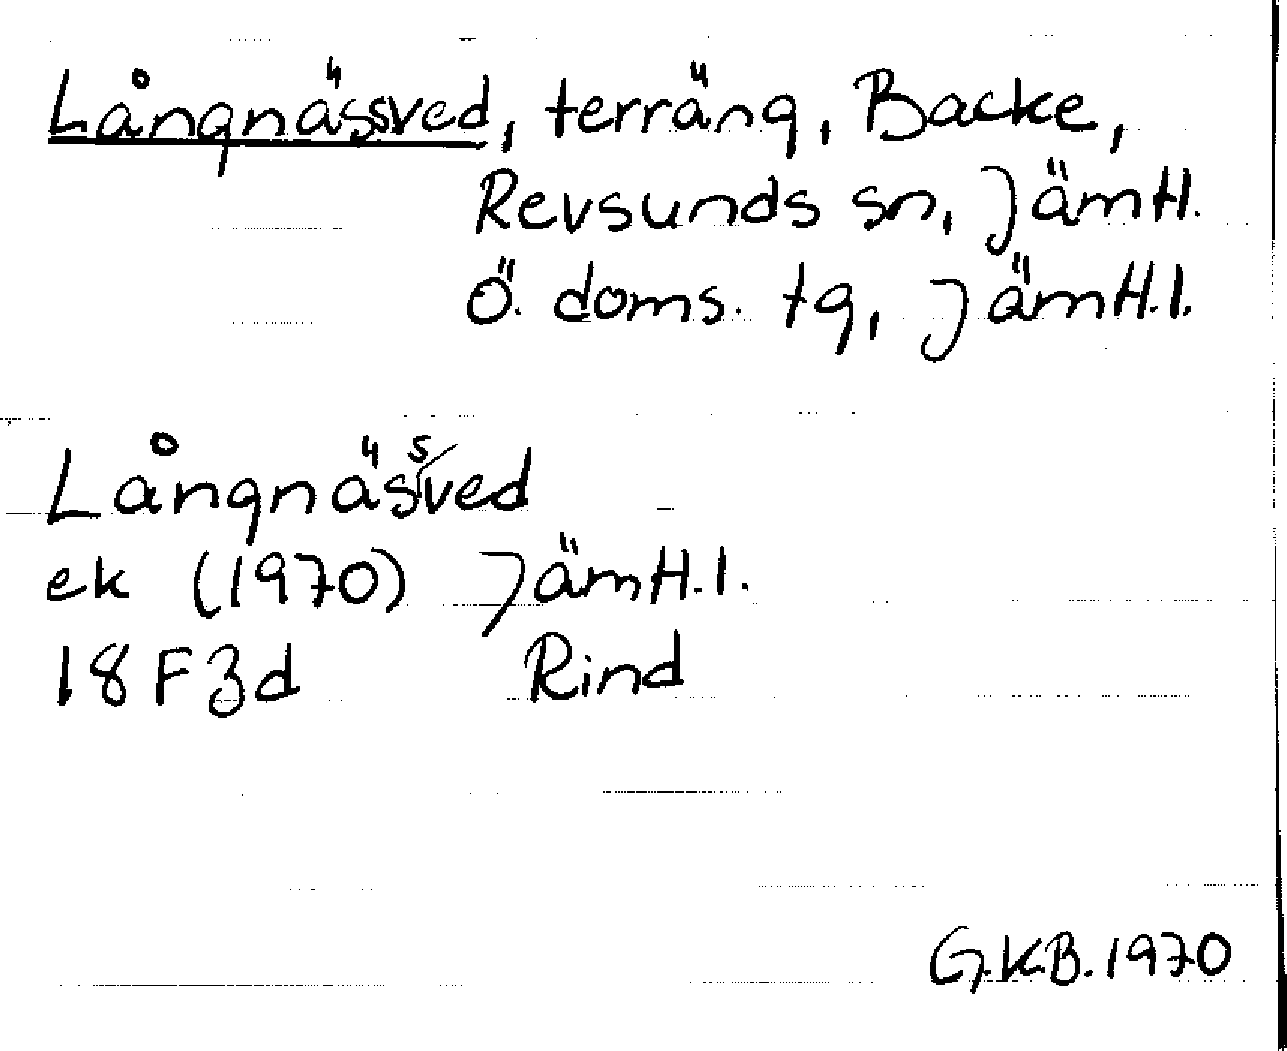 Långnässved, terräng, Backe,
Revsunds sn, Jämtl.
Ö. doms. tg, Jämtl.l.
Långnässved
ek (1970) Jämtl.l.
18F3d Rind
G.K.B. 1970